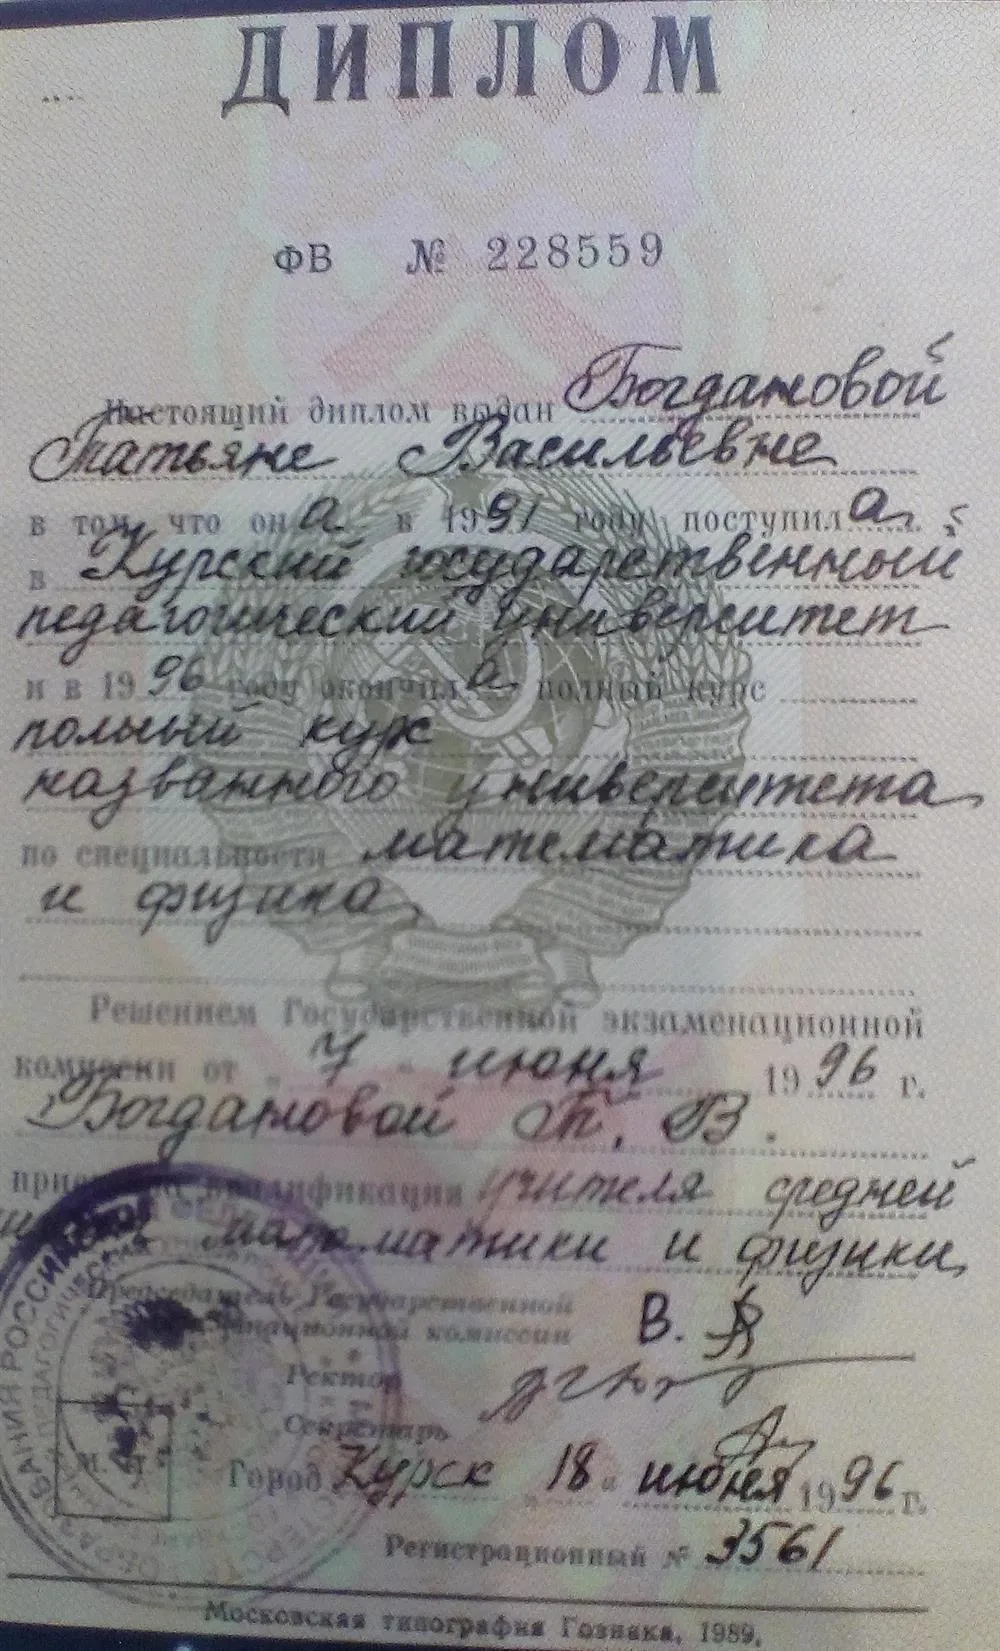 ДИПЛОМ
ФВ № 228559
Настоящий диплом выдан Богдановой
Татьяне Васильевне
в том, что она в 1991 году поступила
в Курский государственный
педагогический университет
и в 1996 году окончила полный курс
полный курс
названного университета
по специальности математика
и физика
Решением Государственной экзаменационной
комиссии от „7“ июня 1996 г.
Богдановой Т. В.
квалификация учителя средней
математики и физики
Председатель Государственной
комиссии В.
Ректор
Секретарь
М. П.
Город Курск „18“ июня 1996 г.
Регистрационный № 3561
Московская типография Гознака, 1989.